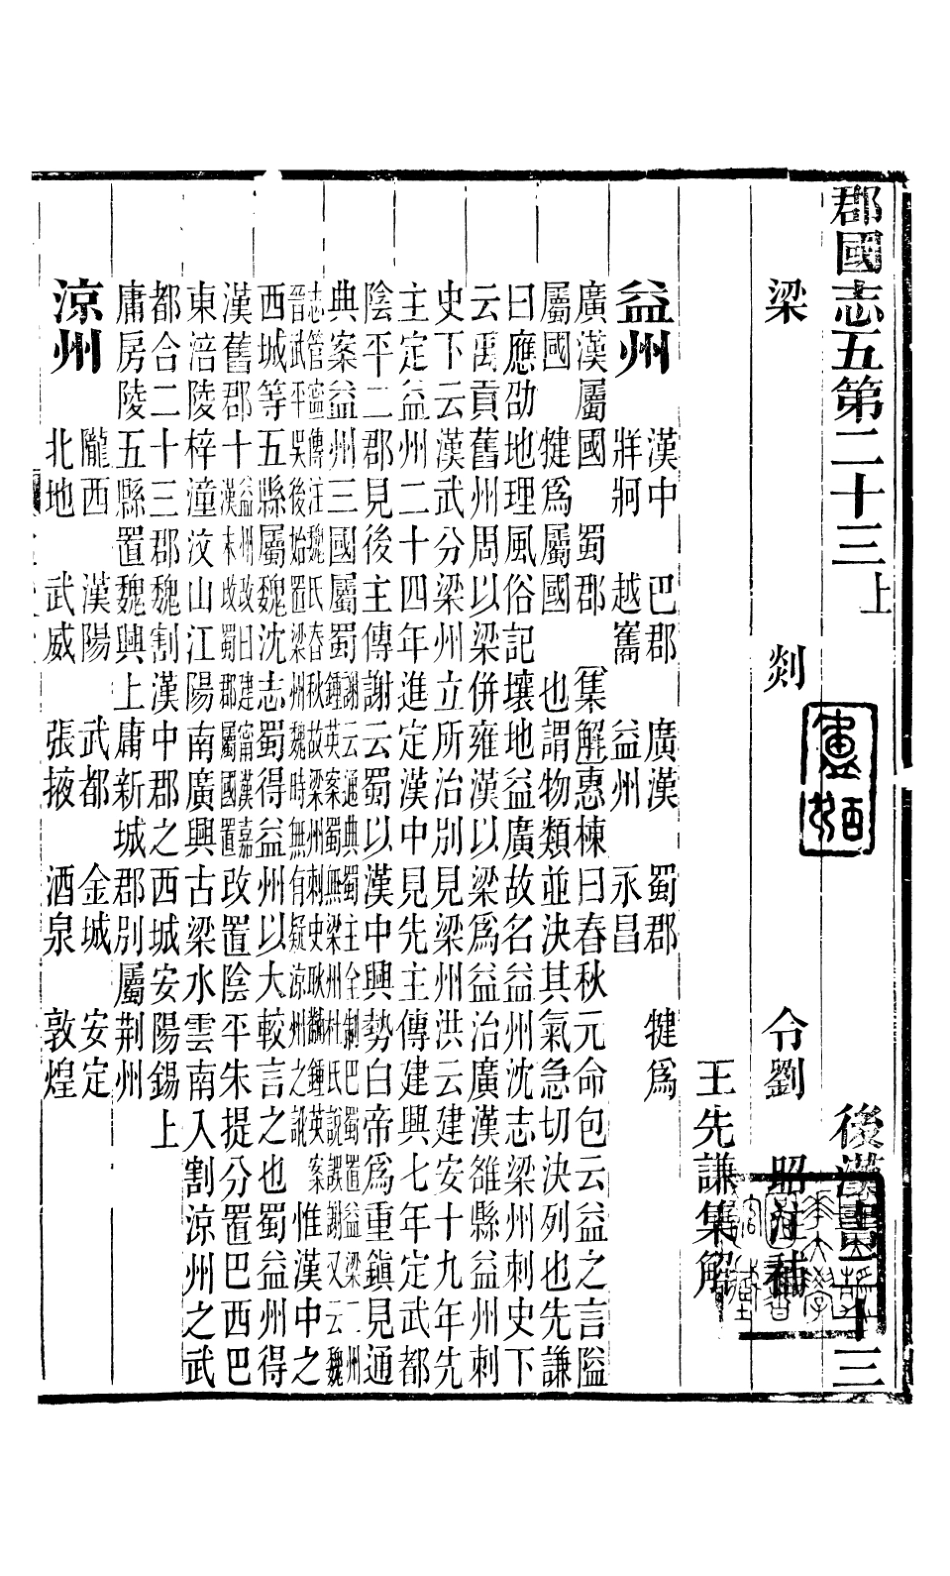 郡國志五第二十三上 後漢書二十三
梁 剡 令劉 昭注補
王先謙集解
益州 漢中 巴郡 廣漢 蜀郡 犍爲
牂牁 越巂 益州 永昌
廣漢屬國 蜀郡
屬國 犍爲屬國
集解惠棟曰春秋元命包云益之言隘
也謂物類並決其氣急切決列也先謙
曰應劭地理風俗記壤地益廣故名益州沈志梁州刺史下
云禹貢舊州周以梁併雍漢以梁爲益治廣漢雒縣益州刺
史下云漢武分梁州立所治別見梁州洪云建安十九年先
主定益州二十四年進定漢中見先主傳建興七年定武都
陰平二郡見後主傳謝云蜀以漢中興勢白帝爲重鎮見通
典案益州三國屬蜀謝云通典蜀主全制巴蜀置益梁二州
鍾英案蜀無梁州杜氏說誤謝又云魏
志管寧傳注魏氏春秋故梁州刺史耿黼鍾英案
晉武平吳後始置梁州魏時無有疑涼州之訛
惟漢中之
西城等五縣屬魏沈志蜀得益州以大較言之也蜀益州得
漢舊郡十益州改曰建甯漢嘉
漢末改蜀郡屬國置
改置陰平朱提分置巴西巴
東涪陵梓潼汶山江陽南廣興古梁水雲南入割涼州之武
都合二十三郡魏割漢中郡之西城安陽錫上
庸房陵五縣置魏興上庸新城郡別屬荆州
涼州 隴西 漢陽 武都 金城 安定
北地 武威 張掖 酒泉 敦煌